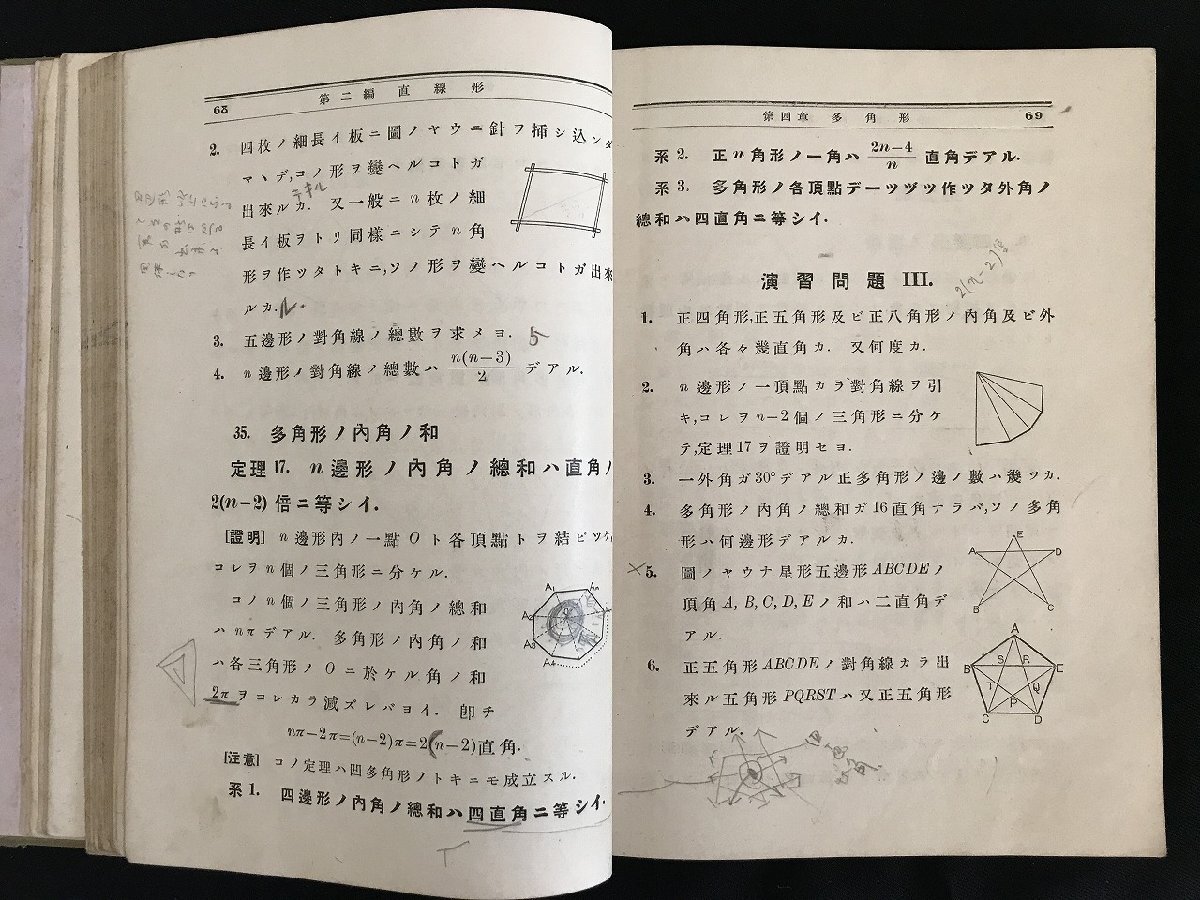 68
第二編 直線形
2. 四枚ノ細長イ板ニ圖ノヤウニ針フ揷シ込ン
マヽデ,コノ形ヲ變ヘルコトガ
出來ルカ. 又一般ニn枚ノ細
長イ板ヲトリ同樣ニシテn角
形ヲ作ツタトキニ,ソノ形ヲ變ヘルコトガ出來
ルカ.
3. 五邊形ノ對角線ノ總數ヲ求メヨ. 5
4. n邊形ノ對角線ノ總數ハ n(n−3)/2 デアル.
35. 多角形ノ內角ノ和
定理 17. n邊形ノ內角ノ總和ハ直角ノ
2(n−2)倍ニ等シイ.
[證明] n邊形內ノ一點Oト各頂點トヲ結ビツ
コレヲn個ノ三角形ニ分ケル.
コノn個ノ三角形ノ內角ノ總和
ハnπデアル. 多角形ノ內角ノ和
ハ各三角形ノOニ於ケル角ノ和
2πヲコレカラ減ズレバヨイ. 卽チ
nπ−2π=(n−2)π=2(n−2)直角.
[注意] コノ定理ハ凹多角形ノトキニモ成立スル.
系1. 四邊形ノ內角ノ總和ハ四直角ニ等シイ.
A1
An
A2
A3
A4
O
第四章 多角形
69
系2. 正n角形ノ一角ハ (2n−4)/n 直角デアル.
系3. 多角形ノ各頂點デ一ツヅツ作ツタ外角ノ
總和ハ四直角ニ等シイ.
演習問題 III.
2(n−2)
1. 正四角形,正五角形及ビ正八角形ノ內角及ビ外
角ハ各々幾直角カ. 又何度カ.
2. n邊形ノ一頂點カラ對角線ヲ引
キ,コレヲn−2個ノ三角形ニ分ケ
テ,定理17ヲ證明セヨ.
3. 一外角ガ30°デアル正多角形ノ邊ノ數ハ幾ツカ.
4. 多角形ノ內角ノ總和ガ16直角ナラバ,ソノ多角
形ハ何邊形デアルカ.
×5. 圖ノヤウナ星形五邊形ABCDEノ
頂角A,B,C,D,Eノ和ハ二直角デ
アル.
E
A
D
B
C
6. 正五角形ABCDEノ對角線カラ出
來ル五角形PQRSTハ又正五角形
デアル.
A
B
S
R
E
T
Q
P
C
D